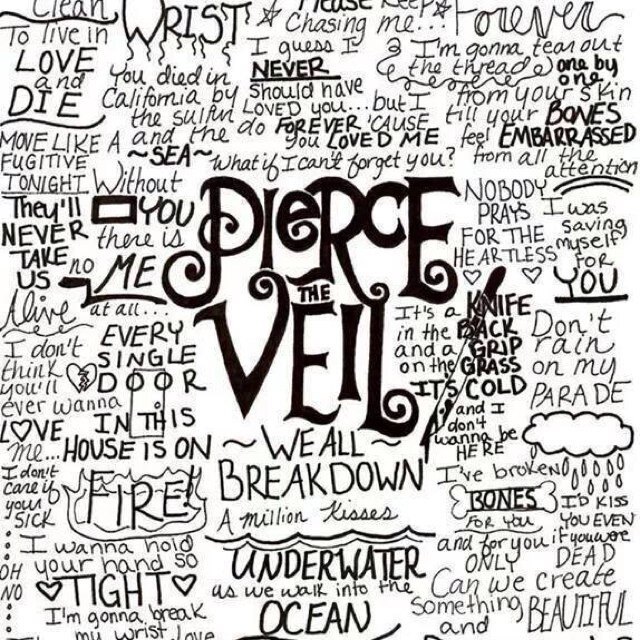 Clean
To live in
LOVE
and
DIE
WRIST
Please Keep
Chasing me...
Forever
You died in
California by
the sulfur
and the
~SEA~
I guess I
NEVER
Should have
LOVED you...but I
do FOREVER 'CAUSE
you LOVED ME
what if I can't forget you?
I'm gonna tear out
the threads one by
one
from your skin
till your BONES
feel EMBARRASSED
from all the
attention
MOVE LIKE A
FUGITIVE
TONIGHT
They'll
NEVER
TAKE
US
Alive
Without
YOU
there is
no ME
at all...
PIERCE
THE
VEIL
NOBODY
PRAYS
FOR THE
HEARTLESS
I was
saving
myself
FOR
YOU
I don't
think
you'll
ever wanna
LOVE
me...
EVERY
SINGLE
DOOR
IN THIS
HOUSE IS ON
FIRE!
It's a KNIFE
in the BACK
and a GRIP
on the GRASS
IT'S COLD
and I
don't
wanna be
HERE
Don't
rain
on my
PARADE
~WE ALL~
BREAKDOWN
A million kisses
UNDERWATER
as we walk into the
OCEAN
I don't
care if
your
SICK
I wanna hold
your hand so
TIGHT
OH
NO
I'm gonna break
my wrist love
I've broken
BONES
FOR YOU
and for you
ONLY
I'D KISS
YOU EVEN
if you were
DEAD
Can we create
something BEAUTIFUL
and